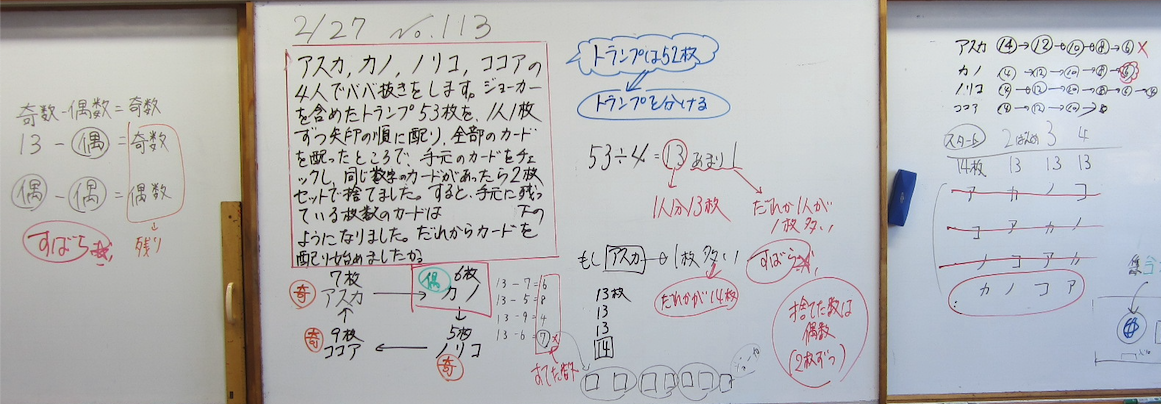 奇数-偶数=奇数
13-偶=奇数
偶-偶=偶数
すばら
残り
2/27 No.113
アスカ,カノ,ノリコ,ココアの
4人でババ抜きをします。ジョーカー
を含めたトランプ53枚を、1人1枚
ずつ矢印の順に配り、全部のカード
を配ったところで、手元のカードをチェ
ックし、同じ数字のカードがあったら2枚
セットで捨てました。すると、手元に残っ
ている枚数のカードは 下の
ようになりました。だれからカードを
配り始めましたか。
7枚 偶 6枚
奇 アスカ → カノ
↑ ↓
奇 9枚 5枚
ココア ← ノリコ
奇
13-7=6
13-5=8
13-9=4
13-6=7×
すてた数
トランプは52枚
トランプを分ける
53÷4=13あまり1
1人分13枚
だれか1人が
1枚多い
もし アスカ→1枚多い すばら
だれかが14枚
13枚
13
13
14
捨てた数は
偶数
(2枚ずつ)
アスカ ⑭→⑫→⑩→⑧→⑥ ×
カノ ⑭→⑫→⑩→⑧→⑥
ノリコ ⑭→⑫→⑩→⑧→⑥
ココア ⑭→⑫→⑩→
スタート 2 3 4
14枚 13 13 13
ア カ ノ コ
コ ア カ ノ
ノ コ ア カ
カ ノ コ ア